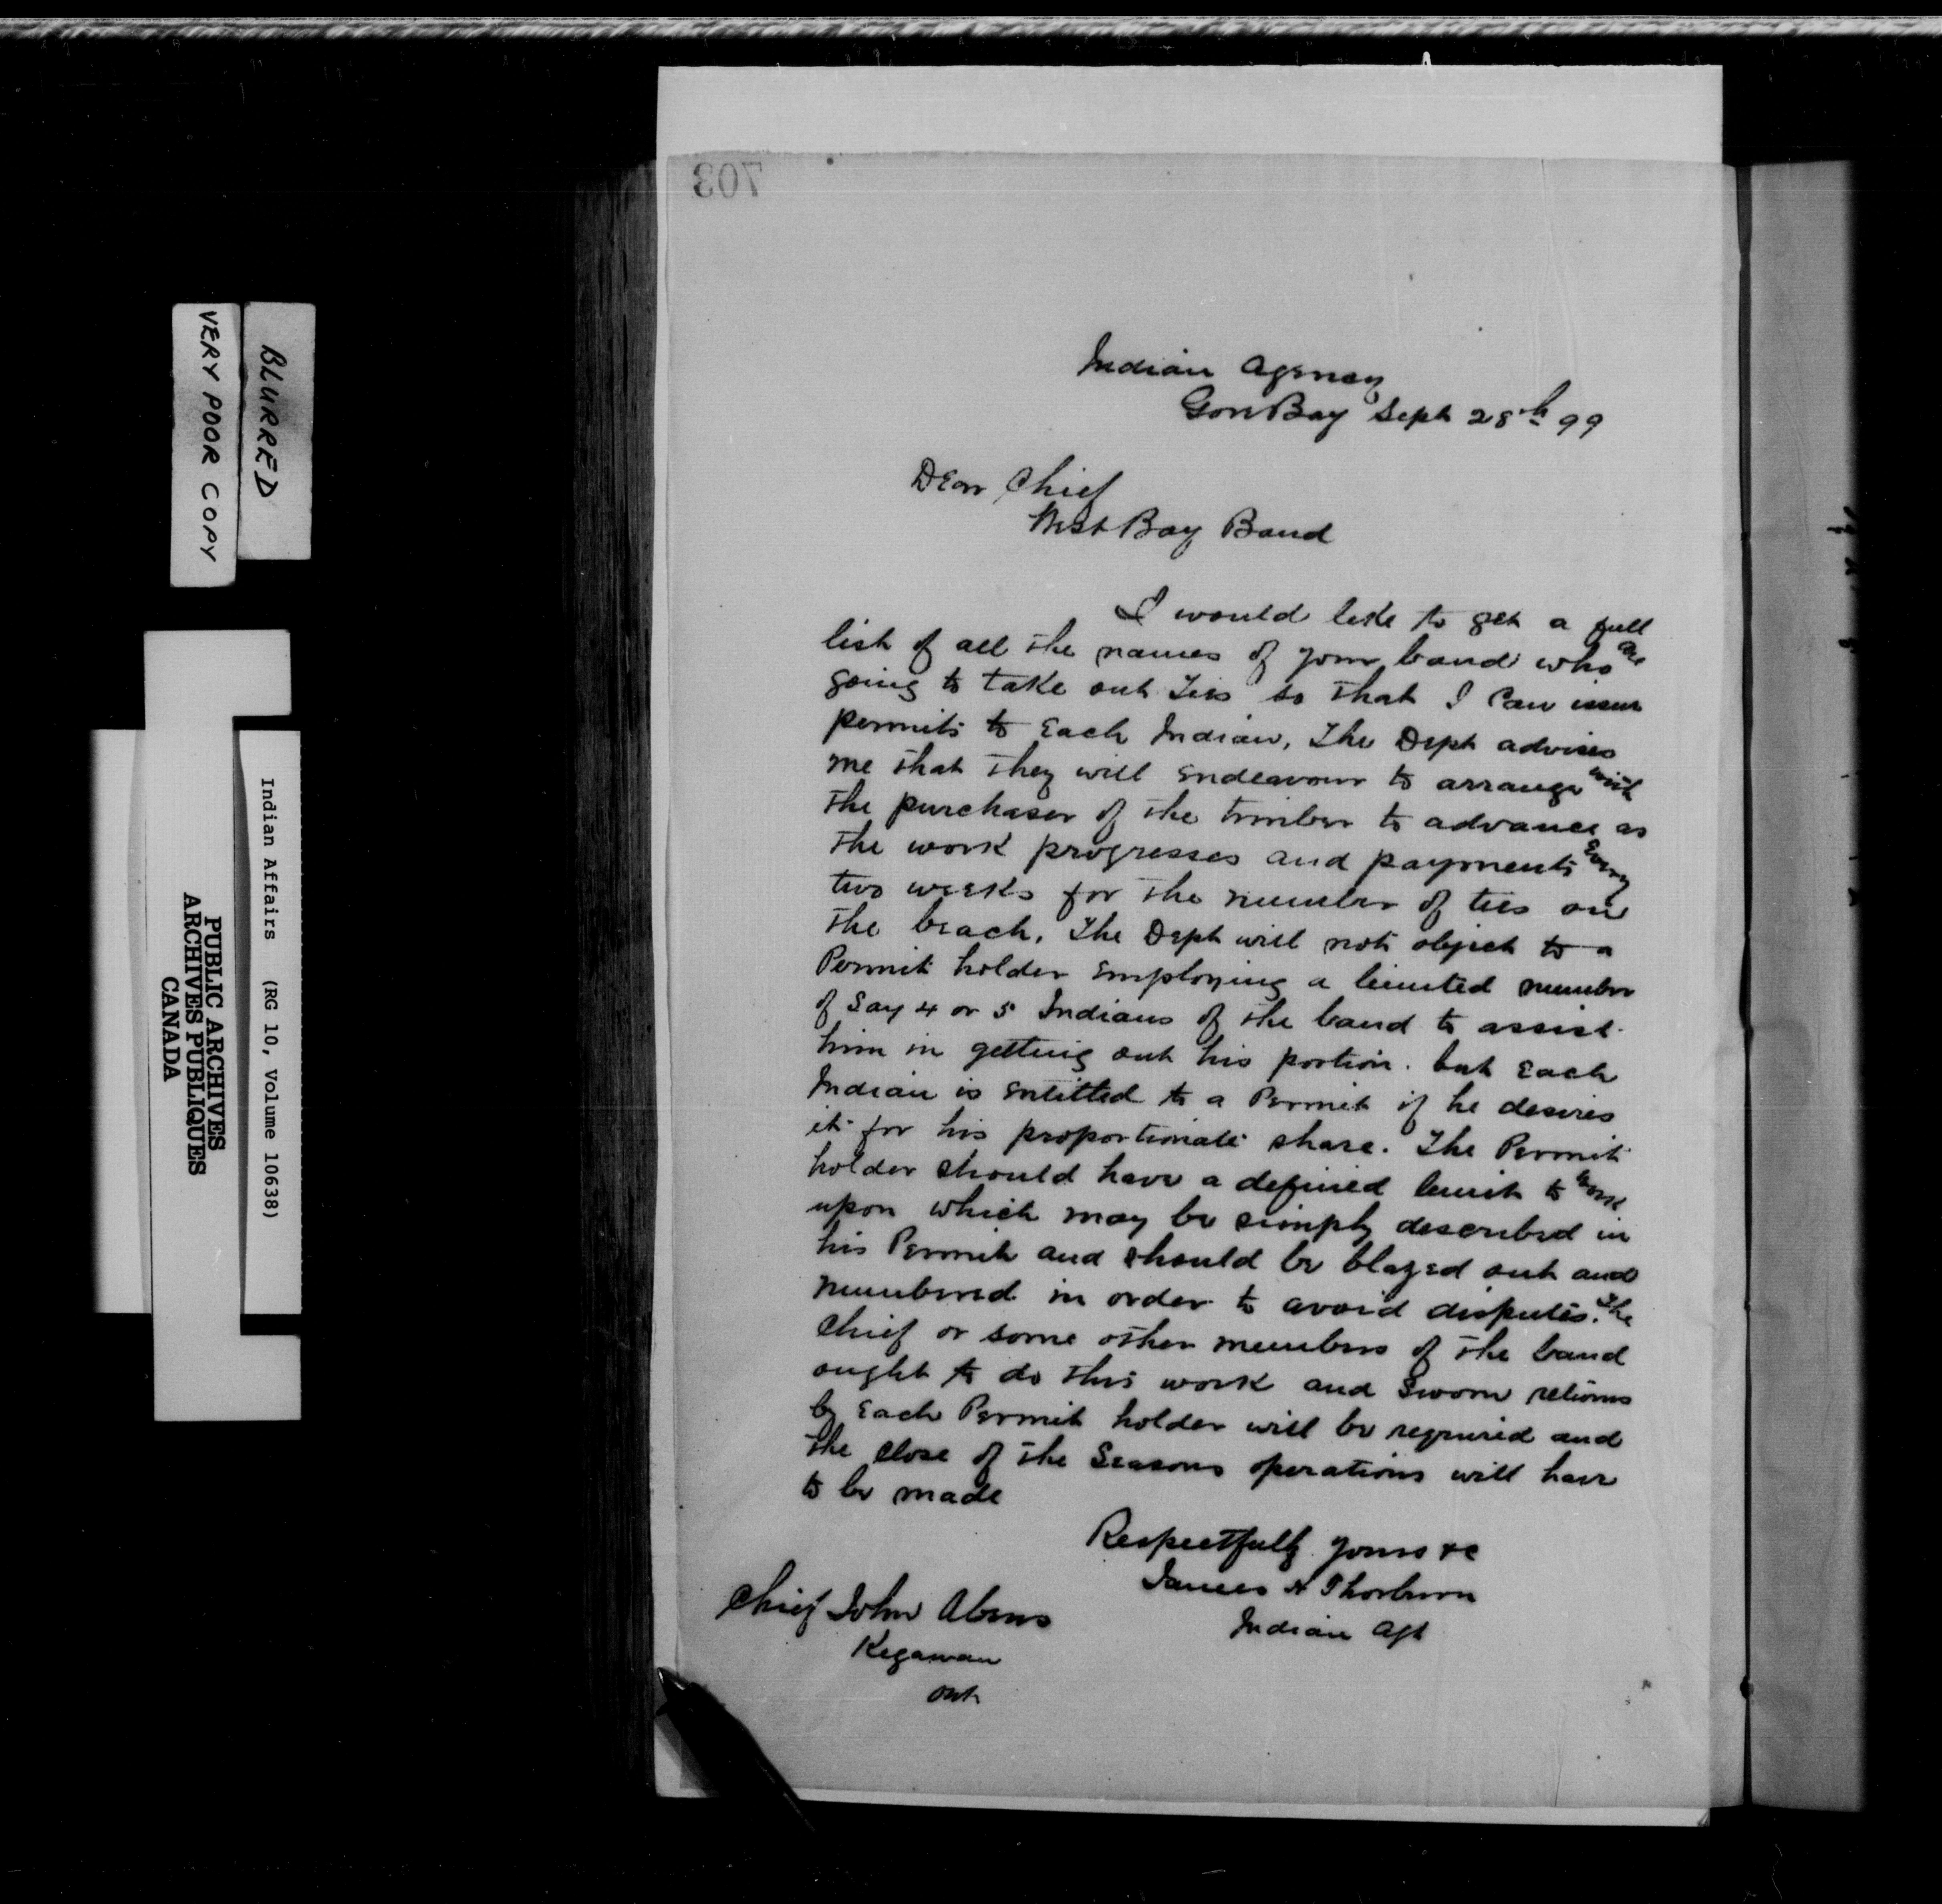 703
Indian Agency
Gore Bay Sept 28th 99
Dear Chief
West Bay Band
I would like to get a full
list of all the names of your band who are
going to take out Ties so that I can issue
permits to Each Indian, The Dept advises
me that they will Endeavour to arrange with
the purchaser of the timber to advance as
the work progresses and payments Every
two weeks for the number of ties on
the beach, The Dept will not object to a
Permit holder Employing a limited number
of Say 4 or 5 Indians of the band to assist
him in getting out his portion. but Each
Indian is Entitled to a Permit if he desires
it for his proportionate share. The Permit
holder should have a defined limit to work
upon which may be simply described in
his Permit and should be blazed out and
numbered in order to avoid disputes. The
Chief or some other members of the band
ought to do this work and Sworn returns
by Each Permit holder will be required and
the Close of the Seasons operations will have
to be made
Respectfully yours &c
James H Thorburn
Indian Agt
Chief John Abens
Kegawan
Ont
BLURRED
VERY POOR COPY
Indian Affairs (RG 10, Volume 10638)
PUBLIC ARCHIVES
ARCHIVES PUBLIQUES
CANADA